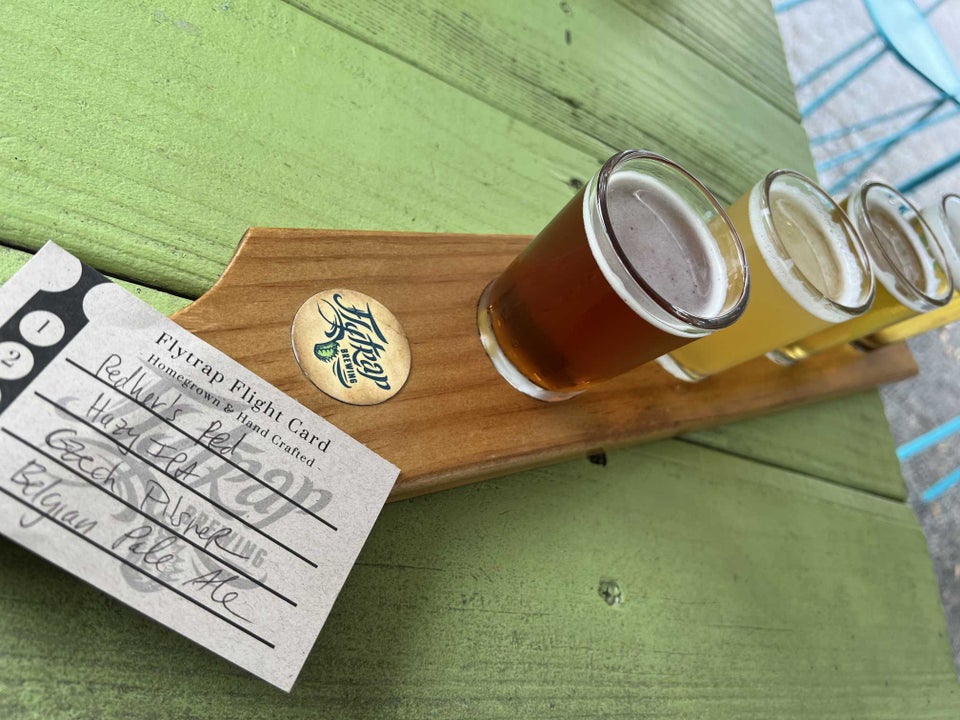 Flytrap
BREWING
Flytrap Flight Card
Homegrown & Hand Crafted
1
2
RedHer's Red
Hazy IPA
Czech Pilsner
Belgian Pale Ale
Flytrap
BREWING